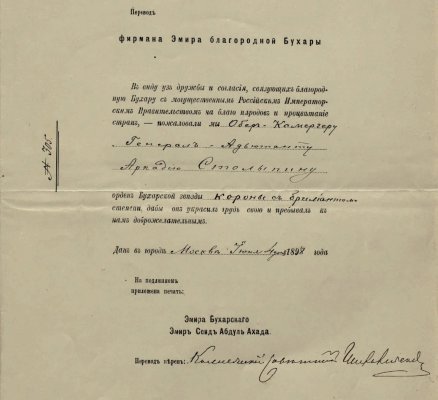 Переводъ
фирмана Эмира благородной Бухары
Въ виду узъ дружбы и согласія, связующихъ благород-
ную Бухару съ могущественнымъ Россійскимъ Император-
скимъ Правительствомъ на благо народовъ и процвѣтаніе
странъ, — пожаловали мы Оберъ-Камергеру
Генералъ-Адъютанту
Аркадію Столыпину
№ 305
орденъ Бухарской звѣзды короны съ брилліантомъ
степени, дабы онъ украсилъ грудь свою и пребывалъ къ
намъ доброжелательнымъ.
Данъ въ городѣ Москва 189 года
На подлинномъ
приложена печать:
Эмира Бухарскаго
Эмиръ Сеидъ Абдулъ Ахада.
Переводъ вѣренъ: Коллежскій Совѣтникъ